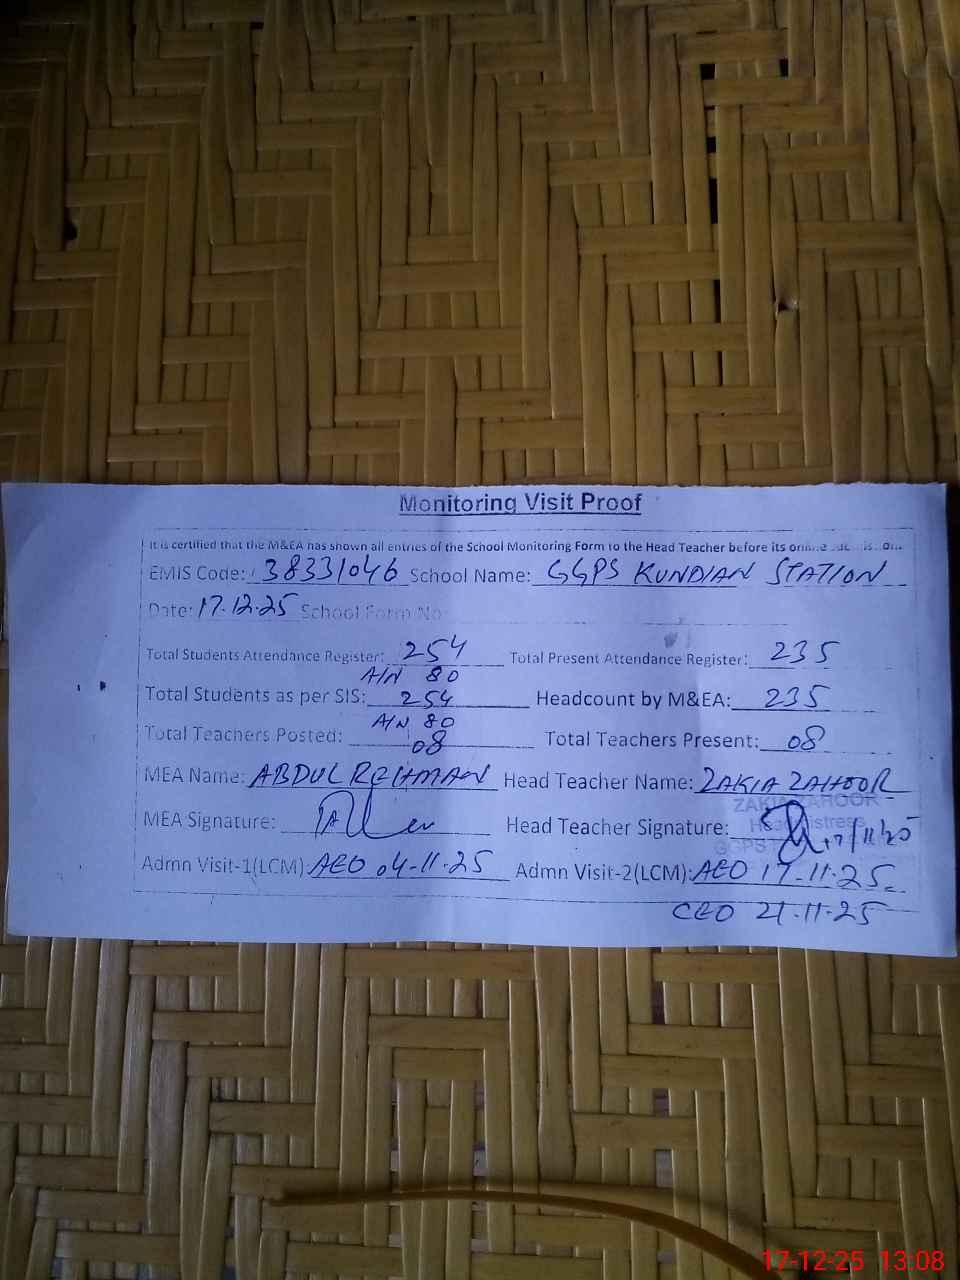 Monitoring Visit Proof
It is certified that the M&EA has shown all entries of the School Monitoring Form to the Head Teacher before its
EMIS Code: 38331046 School Name: GGPS KUNDIAN STATION
Date: 17.12.25 School Form No:
Total Students Attendance Register: 254 Total Present Attendance Register: 235
A/N 80
Total Students as per SIS: 254 Headcount by M&EA: 235
A/N 80
Total Teachers Posted: 08 Total Teachers Present: 08
MEA Name: ABDUL REHMAN Head Teacher Name: ZAKIA ZAHOOR
ZAKIA ZAHOOR
MEA Signature: Head Teacher Signature:
Headmistress
GGPS
Admn Visit-1(LCM): AEO 04-11-25 Admn Visit-2(LCM): AEO 17-11-25
CEO 21-11-25
17-12-25 13:08